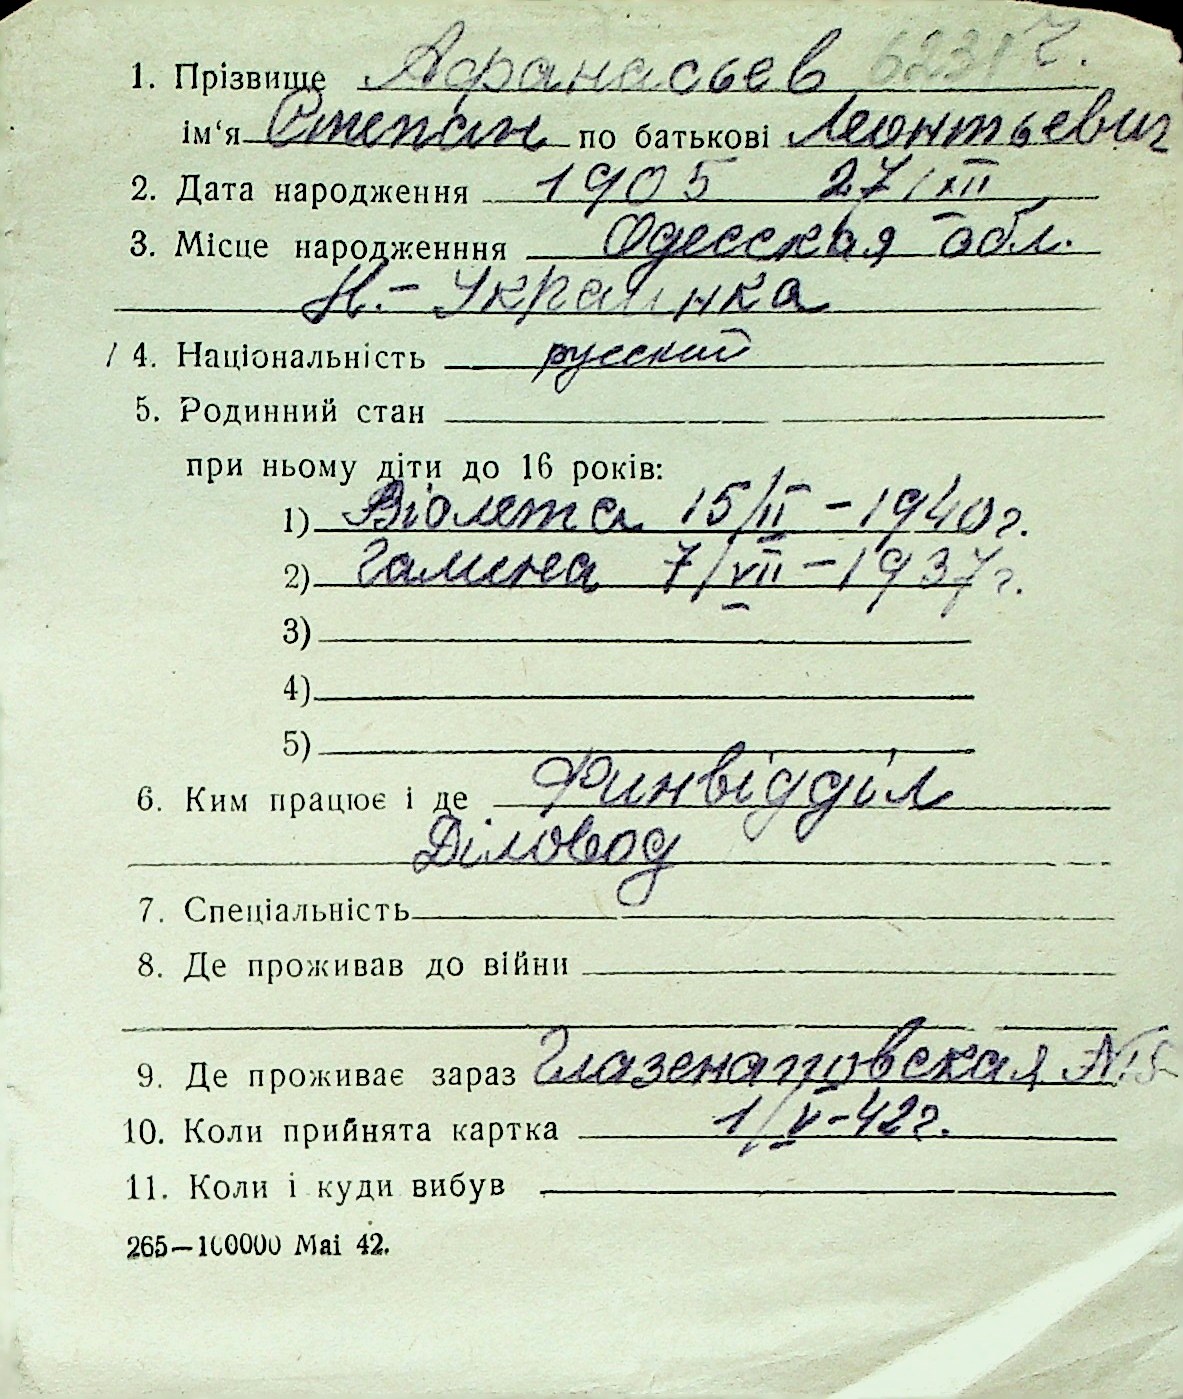 1. Прізвище Афанасьев 6231 г.
ім‘я Степан по батькові Леонтьевич
2. Дата народження 1905 27/XII
3. Місце народженння Одесская обл.
Н.-Украинка
/ 4. Національність русский
5. Родинний стан
при ньому діти до 16 років:
1) Віолета 15/II-1940г.
2) Галина 7/VII-1937г.
3)
4)
5)
6. Ким працює і де Финвідділ
Діловод
7. Спеціальність
8. Де проживав до війни
9. Де проживає зараз Глазенаповская №15
10. Коли прийнята картка 1/V-42г.
11. Коли і куди вибув
265—100000 Mai 42.